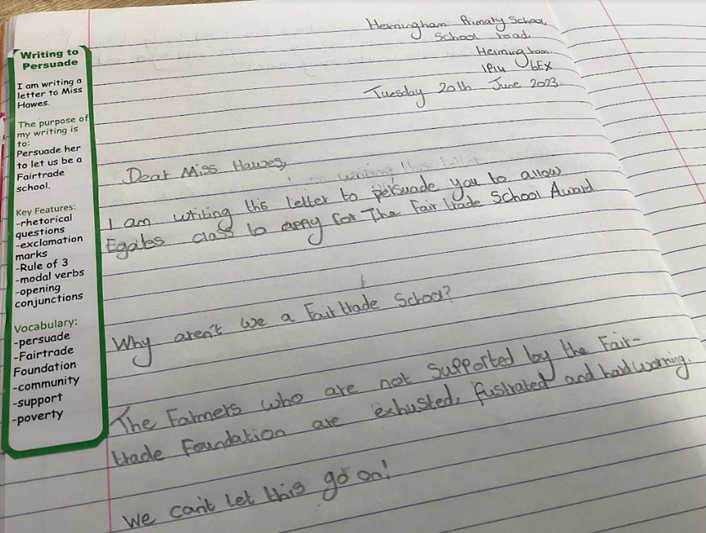 Writing to
Persuade
I am writing a
letter to Miss
Hawes.
The purpose of
my writing is
to:
Persuade her
to let us be a
Fairtrade
school.
Key Features:
-rhetorical
questions
-exclamation
marks
-Rule of 3
-modal verbs
-opening
conjunctions
Vocabulary:
-persuade
-Fairtrade
Foundation
-community
-support
-poverty
Hemingham Primary School,
School road,
Hemingham
6EX
Tuesday 20th June 2023.
Dear Miss Hawes,
I am writing this letter to persuade you to allow
class to apply for The Fair trade School Award
Why aren't we a Fair trade School?
The Farmers who are not supported by the Fair-
trade Foundation are exhusted, fustrated and hard working.
We can't let this go on!